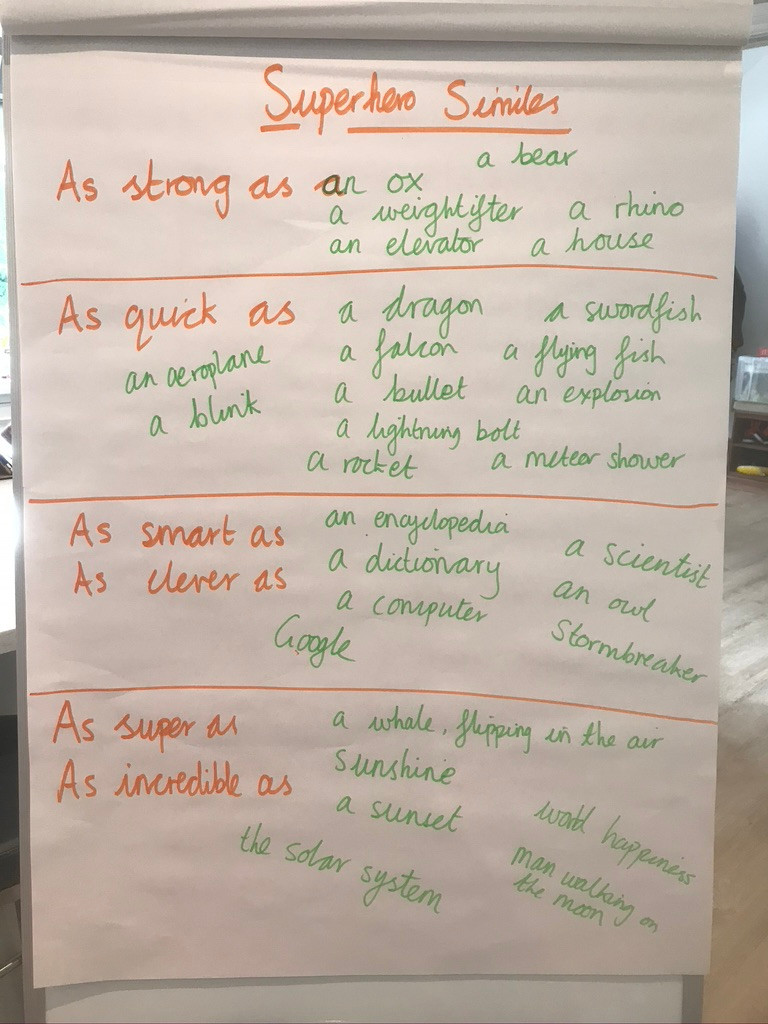 Superhero Similes
a bear
As strong as an ox
a weightifter a rhino
an elevator a house
As quick as a dragon a swordfish
an aeroplane a falcon a flying fish
a blink a bullet an explosion
a lightning bolt
a rocket a meteor shower
As smart as an encyclopedia
As clever as a dictionary a scientist
a computer an owl
Google Stormbreaker
As super as a whale, flipping in the air
As incredible as sunshine
a sunset world happiness
the solar system man walking on
the moon